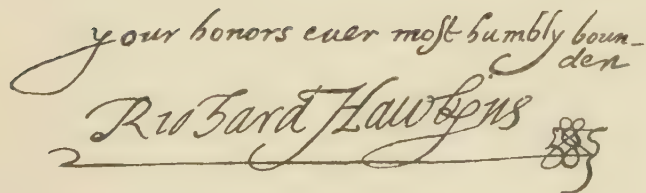 your honors euer moſt humbly boun-
den
Richard Hawkyns